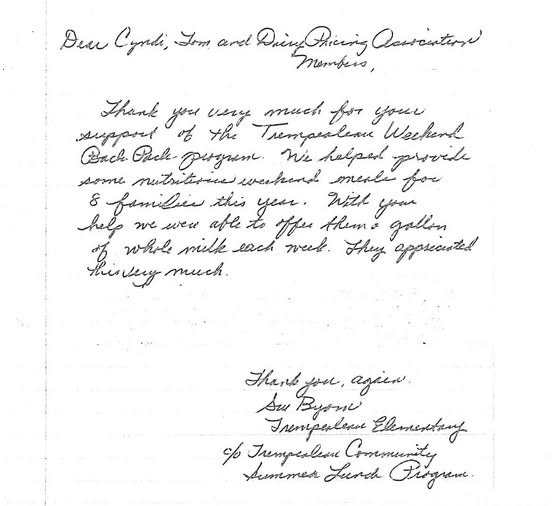 Dear Cyndi, Tom and Dairy Pricing Association
Members,
Thank you very much for your
support of the Trempealeau Weekend
Back Pack program. We helped provide
some nutritious weekend meals for
8 families this year. With your
help we were able to offer them a gallon
of whole milk each week. They appreciated
this very much.
Thank you, again.
Sue Byom
Trempealeau Elementary
c/o Trempealeau Community
Summer Lunch Program.